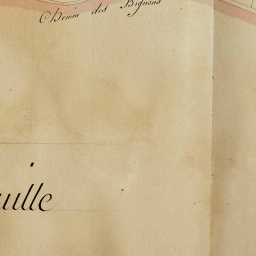 Chemin des Bignons
uille